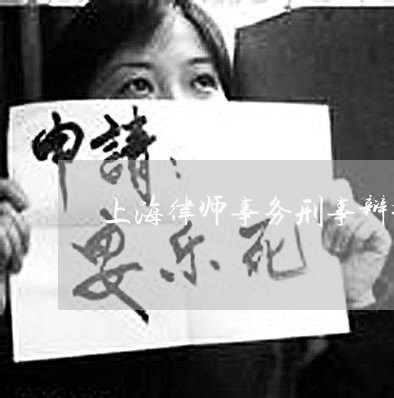 申請：
上海律师事务刑事辩
安乐死